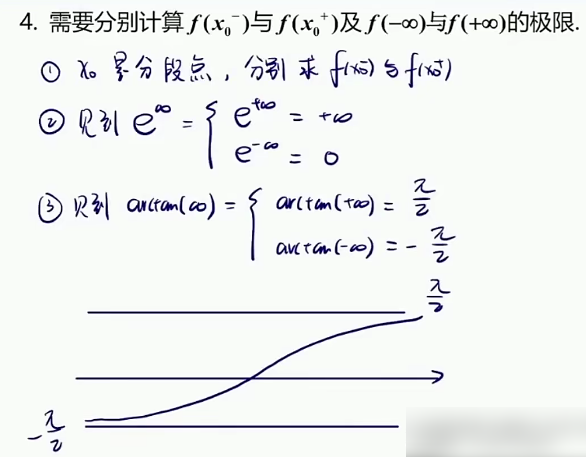 4. 需要分别计算 f(x₀⁻)与 f(x₀⁺)及 f(−∞)与f(+∞)的极限.
① x₀是分段点，分别求 f(x₀⁻)与f(x₀⁺)
② 见到 e^∞ = { e^{+∞} = +∞
e^{-∞} = 0
③ 见到 arctan(∞) = { arctan(+∞) = π/2
arctan(-∞) = - π/2
π/2
- π/2